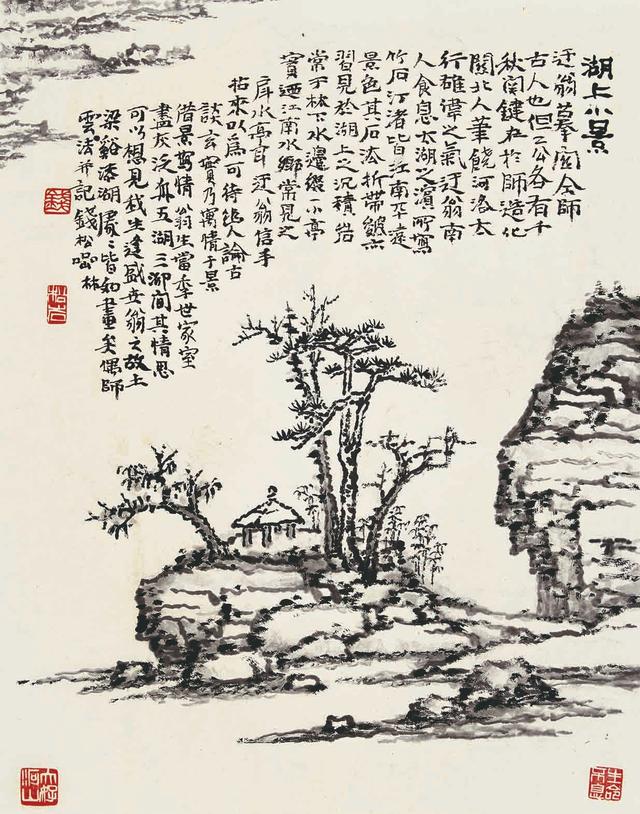 湖上小景
迂翁摹關仝師
古人也但二公各有千
秋關鍵在於師造化
關北人筆饒河洛太
行雄偉之氣迂翁南
人食息太湖之濱所寫
竹石汀渚皆江南平遠
景色其石法折帶皴亦
習見於湖上之沉積岩
常于林下水邊綴一小亭
實迺江南水鄉常見之
岸水亭耳迂翁信手
拈來以爲可待人論古
談玄實乃寓情于景
借景寫情翁生當季世家室
盡灰泛舟五湖三泖間其情思
可以想見我生逢盛世翁之故土
梁谿漆湖處々皆如畫矣偶師
雲法并記錢松嵒
錢
松岩
大好河山
生命不息